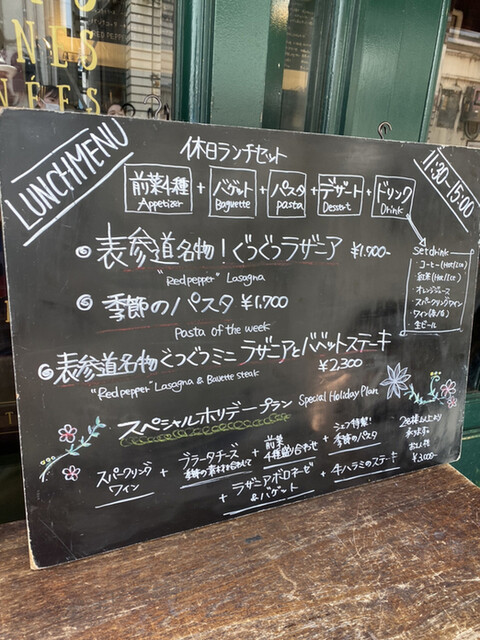 LUNCH MENU
休日ランチセット
11:30-15:00
前菜4種 + バゲット + パスタ + デザート + ドリンク
Appetizer Baguette pasta Dessert Drink
表参道名物!ぐつぐつラザニア ¥1.900-
"Redpepper" Lasagna
季節のパスタ ¥1.700
Pasta of the week
表参道名物ぐつぐつミニ ラザニアとバベットステーキ
"Redpepper" Lasagna & Bavette steak
¥2,300
set drink
・コーヒー(Hot/Ice)
・紅茶(Hot/Ice)
・オレンジジュース
・スパークリングワイン
・ワイン(赤/白)
・生ビール
スペシャルホリデープラン Special Holiday Plan
スパークリングワイン
+ ブラータチーズ 季節の素材を合わせて
+ 前菜4種盛り合わせ
+ シェフ特製!季節のパスタ
+ ラザニアボロネーゼ & バゲット
+ 牛ハラミのステーキ
2名様以上より
お1人様
¥3,000-